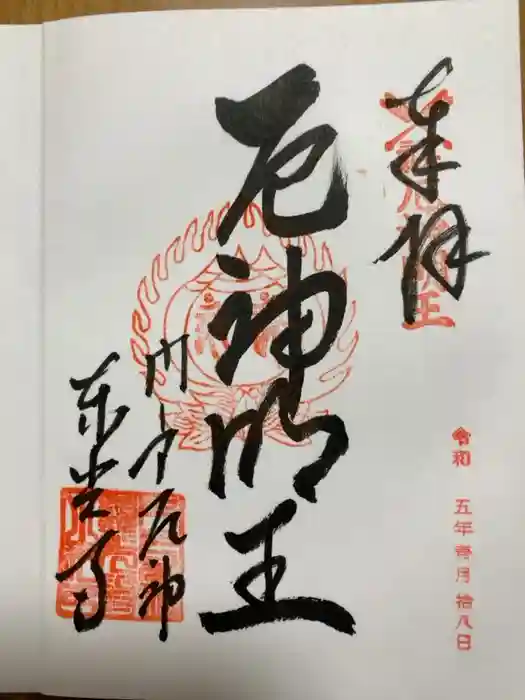 奉拝
令和 五年壱月拾八日
厄神明王
門戸厄神
東光寺